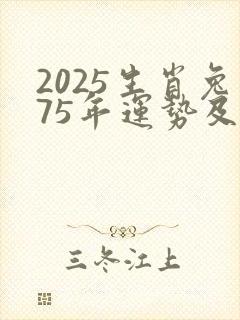 2025生肖兔
75年運势及
三冬江上